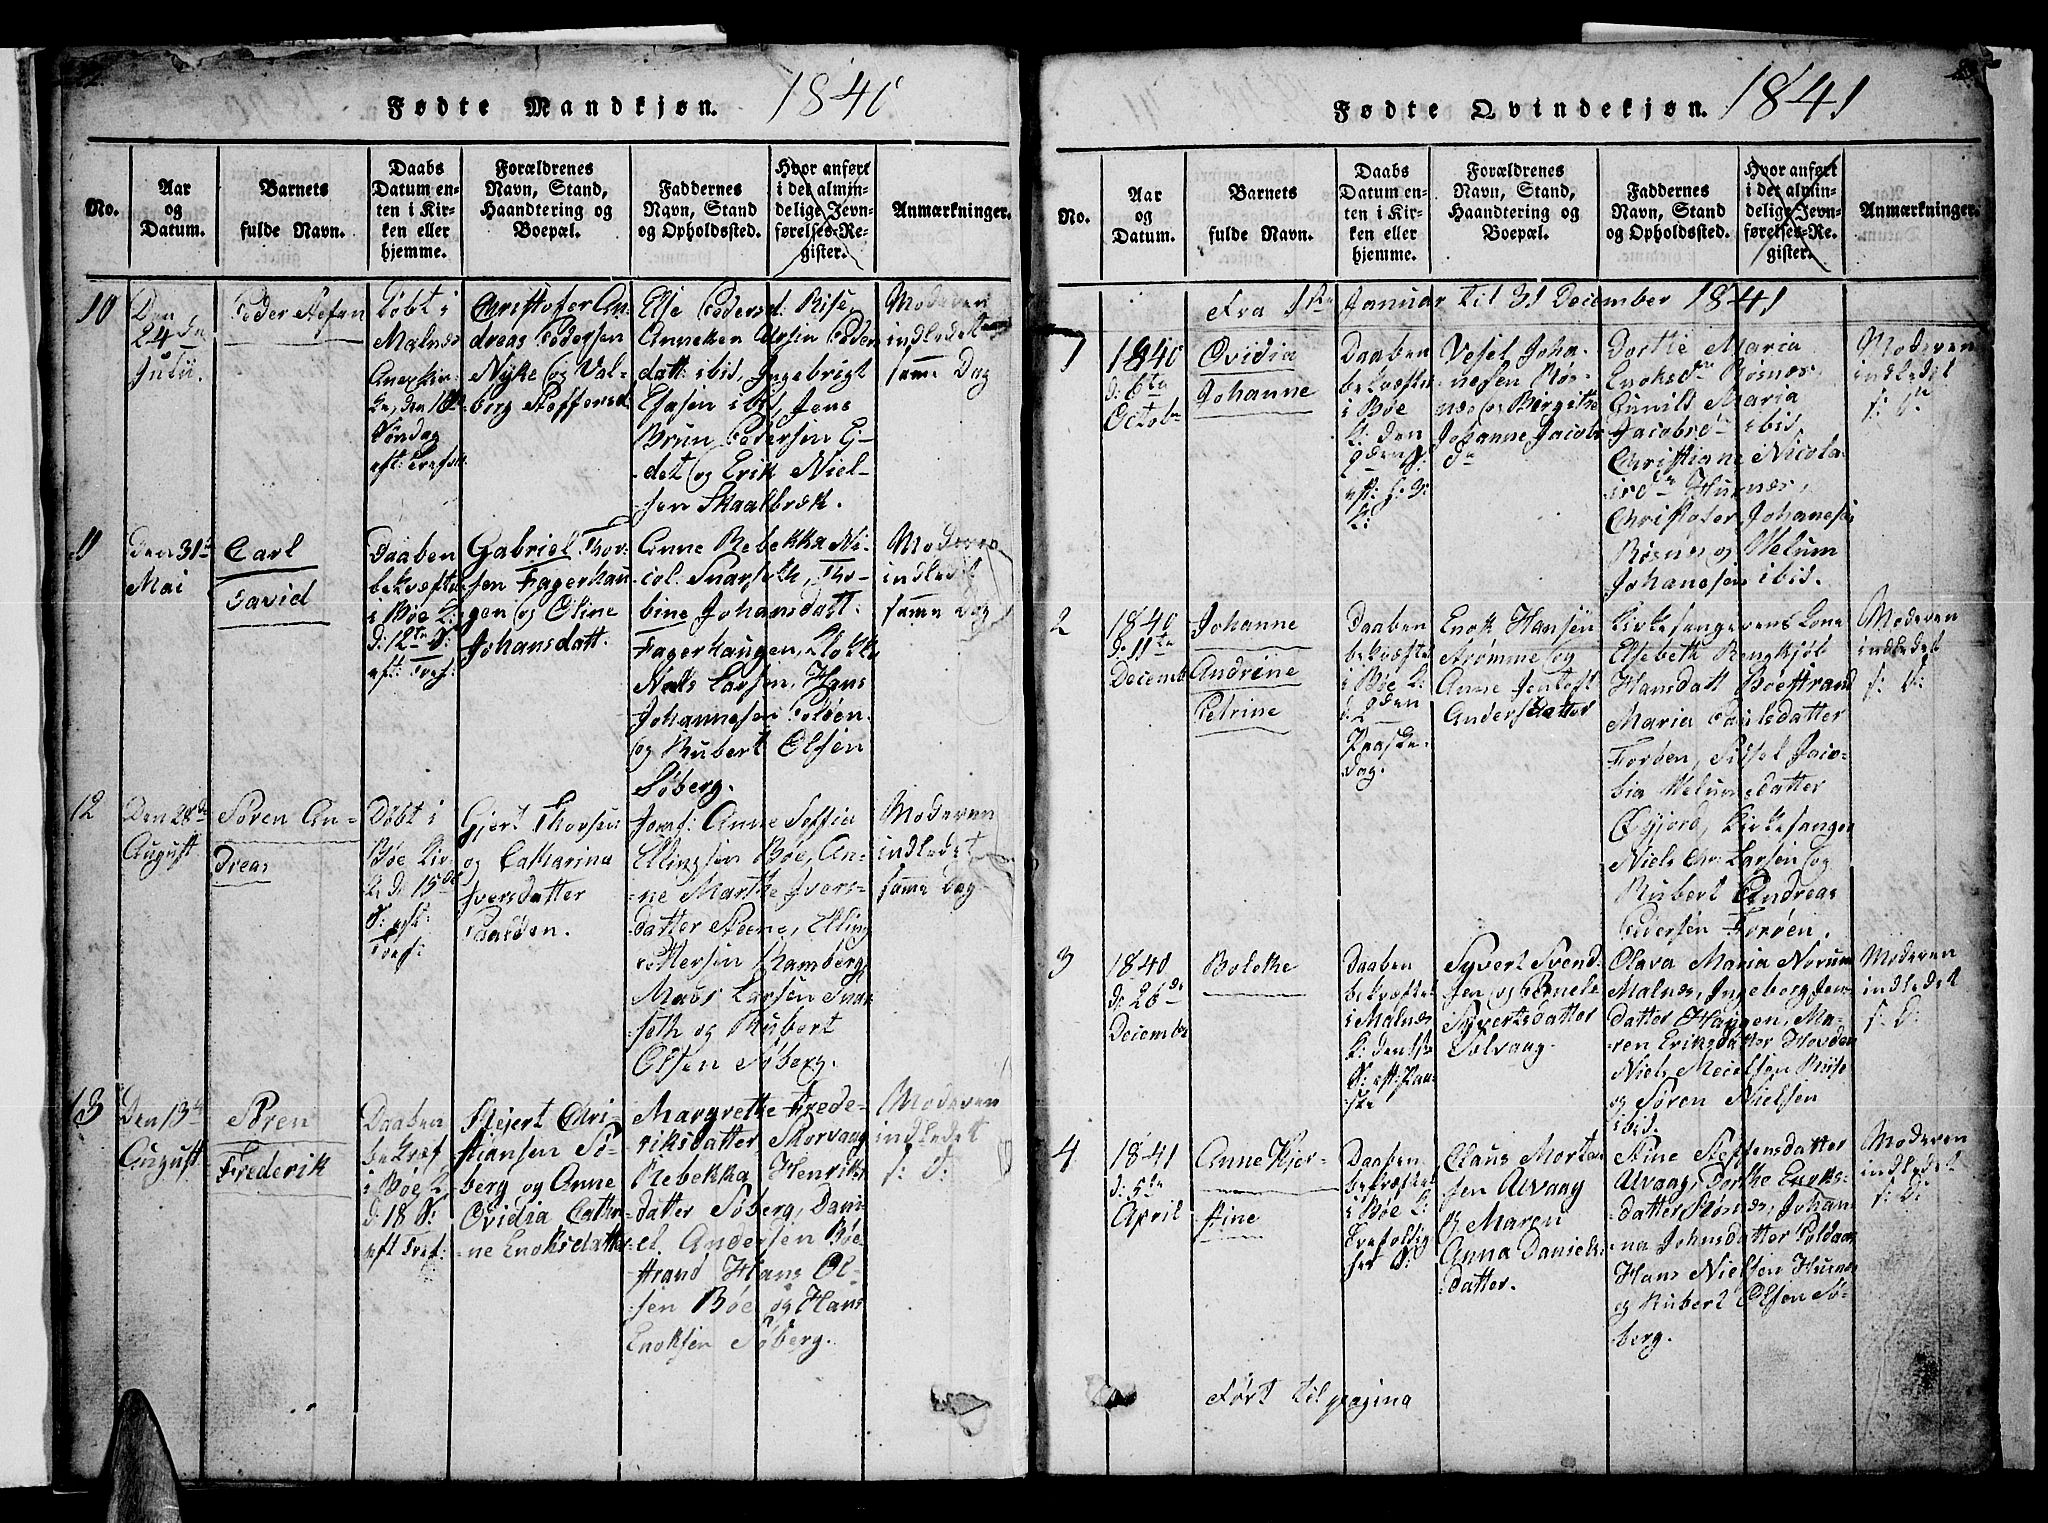 Fødte Mandkjøn. 1840
No.
Aar
og
Datum.
Barnets
fulde Navn.
Daabs
Datum en-
ten i Kir-
ken eller
hjemme.
Forældrenes
Navn, Stand,
Haandtering og
Boepæl.
Faddernes
Navn, Stand
og Opholdssted.
Hvor anført
i det almin-
delige Jevn-
førelses-Re-
gister.
Anmærkninger.
10
Den
24de
Julii.
Peder Stefen
Døbt i
Malnæs
Anexkir-
ke, den 10de
Søndag
eft: Trefol
Christofer An-
dreas Pedersen
Nyke og Val-
borg Steffensd
Else Pedersd. Riise,
Anneken Persin Peder
datt: ibid, Ingebrigt
Esasen ibid, Jens
Brun Pedersen Ei-
det og Erik Niel-
sen Skaalbræk.
Moderen
indledet
samme Dag
11
Den 31te
Mai
Carl
David
Daaben
bekræftet
i Bøe K:
d: 12te S:
eft: Tref:
Gabriel Thor:
sen Fagerhau
gen og Oline
Johansdatt.
Anne Rebekka Ni-
col. Snarseth, Tho-
bine Johansdatt.
Fagerhaugen, Klokker
Niels Larsen, Hans
Johannesen Poløen
og Rubert Olsen
Søberg.
Moderen
indledet
samme Dag
12
Den 28de
August
Søren An-
dreas
Døbt i
Bøe Kir-
ke d: 15de
S: eft:
Tref:
Gjert Thorsen
og Catharina
Iversdatter
Poløen.
Jomf: Anne Soffia
Ellingsen Bøe, An-
ne Marthe Ivers-
datter Steene, Elling
Pettersen Ramberg
Mads Larsen Snar
seth og Rubert
Olsen Søberg.
Moderen
indledet
samme Dag
13
Den 13de
August
Søren
Frederik
Daaben
bekræf
i Bøe K.
d: 18 S:
eft Tref:
Stejert Chri-
stiansen Sø-
berg og Anne
Ovidia Cathri-
ne Enoksdatter
Margrethe Frede-
riksdatter Skorvaag
Rebekka Henriks
datter Søberg, Dani-
el Andersen Bøe
strand Hans Ol-
sen Bøe og Hans
Enoksen Søberg.
Moderen
indledet
s: D:
Fødte Qvindekjøn. 1841
No.
Aar
og
Datum.
Barnets
fulde Navn.
Daabs
Datum en-
ten i Kir-
ken eller
hjemme.
Forældrenes
Navn, Stand,
Haandtering og
Boepæl.
Faddernes
Navn, Stand
og Opholdssted.
Hvor anført
i det almin-
delige Jevn-
førelses-Re-
gister.
Anmærkninger.
Fra 1ste Januar til 31 December 1841
1
1840
d: 6te
Octob
Ovidia
Johanne
Daaben
bekræftet
i Bøe
K: den
2den S:
eft: H: 3:
K:
Vesel Joha-
nesen Røs-
næs og Birgithe
Johanne Jacobs
Da
Dorthe Maria
Enoksdr Røsnæs
Gunild Maria
Jacobsdr ibid.
Christiane Nicola-
isdr Hurnæs,
Christofer Johanesen
Røsnæs og Velum
Johanesen ibid.
Moderen
indledet
s: D:
2
1840
d: 11te
Decemb
Johanne
Andrine
Petrine
Daaben
bekræftet
i Bøe K:
d: 2den
Paaske-
dag.
Enok Hansen
Strømme og
Anne Jentoft
Andersdatter
Kirkesangerens Kone
Elsebeth Rengkjøb
Hansdatt Bøestrand
Maria Poulsdatter
Forøen, Sidsel Jaco-
bia Velumsdatter
Øyjord, Kirkesanger
Niels Chr: Larsen og
Rubert Andreas
Pedersen Forøen.
Moderen
indledet
s: D:
3
1840
d: 26de
December
Bolethe
Daaben
bekræftet
i Malnæs
K: den 1ste
S: eft: Paa-
ske
Syvert Svend-
sen og Pernele
Syvertsdatter
Solvaag.
Olava Maria Norum
Malnæs, Ingeborg Jens
datter Haugen, Ma-
ren Eriksdatter Hovden
Niels Mecelsen Riise
og Søren Nielsen
ibid.
Moderen
indledet
s: D:
4
1841
d: 5te
April
Anne Kjer-
stine
Daaben
bekræftet
i Bøe K:
Trefoldig
hed S:
Claus Morten
sen Alvaag
og Maren
Anna Daniels-
datter.
Stine Steffensdatter
Alvaag, Dorthe Enoks-
datter Røsnæs, Johan
na Johnsdatter Poldaas
Hans Nielsen Hurnæs
og Rubert Olsen Sø-
berg.
Moderen
indledet
s: D:
Ført til pagina